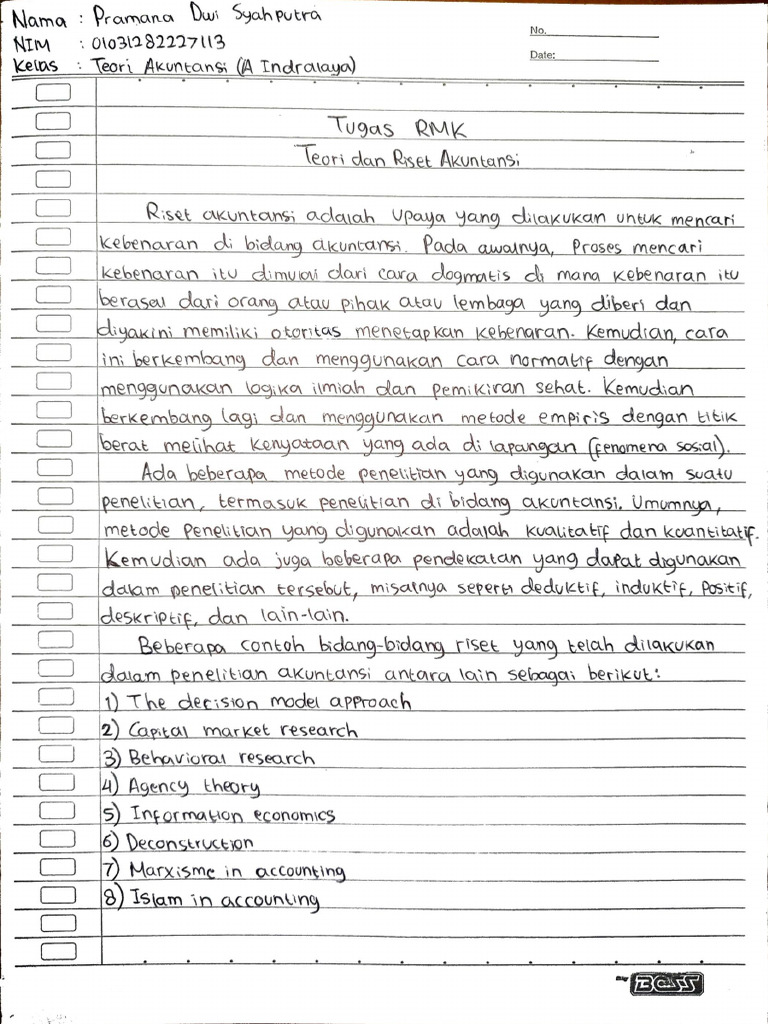 Nama : Pramana Dwi Syahputra
NIM : 01031282227113
Kelas : Teori Akuntansi (A Indralaya)
No.
Date:
Tugas RMK
Teori dan Riset Akuntansi
Riset akuntansi adalah upaya yang dilakukan untuk mencari
kebenaran di bidang akuntansi. Pada awalnya, Proses mencari
kebenaran itu dimulai dari cara dogmatis di mana kebenaran itu
berasal dari orang atau pihak atau lembaga yang diberi dan
diyakini memiliki otoritas menetapkan kebenaran. Kemudian, cara
ini berkembang dan menggunakan cara normatif dengan
menggunakan logika ilmiah dan pemikiran sehat. Kemudian
berkembang lagi dan menggunakan metode empiris dengan titik
berat melihat kenyataan yang ada di lapangan (fenomena sosial).
Ada beberapa metode penelitian yang digunakan dalam suatu
penelitian, termasuk penelitian di bidang akuntansi. Umumnya,
metode penelitian yang digunakan adalah kualitatif dan kuantitatif.
Kemudian ada juga beberapa pendekatan yang dapat digunakan
dalam penelitian tersebut, misalnya seperti deduktif, induktif, Positif,
deskriptif, dan lain-lain.
Beberapa contoh bidang-bidang riset yang telah dilakukan
dalam penelitian akuntansi antara lain sebagai berikut:
1) The decision model approach
2) Capital market research
3) Behavioral research
4) Agency theory
5) Information economics
6) Deconstruction
7) Marxisme in accounting
8) Islam in accounting
BOSS